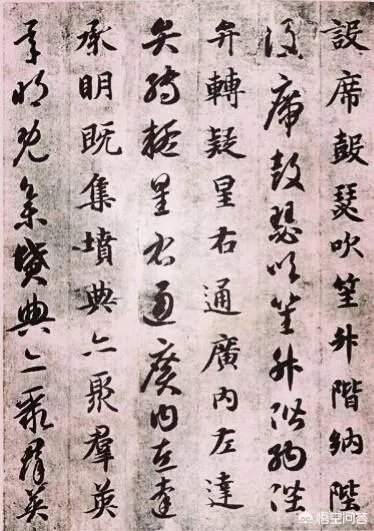 設席鼓瑟吹笙升階納陛
設席鼓瑟吹笙升階納陛
弁轉疑星右通廣內左達
弁轉疑星右通廣內左達
承明既集墳典亦聚羣英
承明既集墳典亦聚羣英
悟空问答